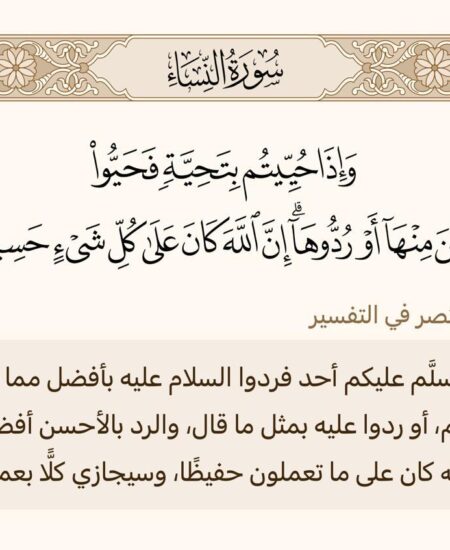 سُورَةُ النِّسَاءِ
وَإِذَا حُيِّيتُم بِتَحِيَّةٍ فَحَيُّوا۟
مِنْهَآ أَوْ رُدُّوهَآ ۗ إِنَّ ٱللَّهَ كَانَ عَلَىٰ كُلِّ شَىْءٍ
في التفسير
سلَّم عليكم أحد فردوا السلام عليه بأفضل مما
أو ردوا عليه بمثل ما قال، والرد بالأحسن
كان على ما تعملون حفيظًا، وسيجازي كلًّا